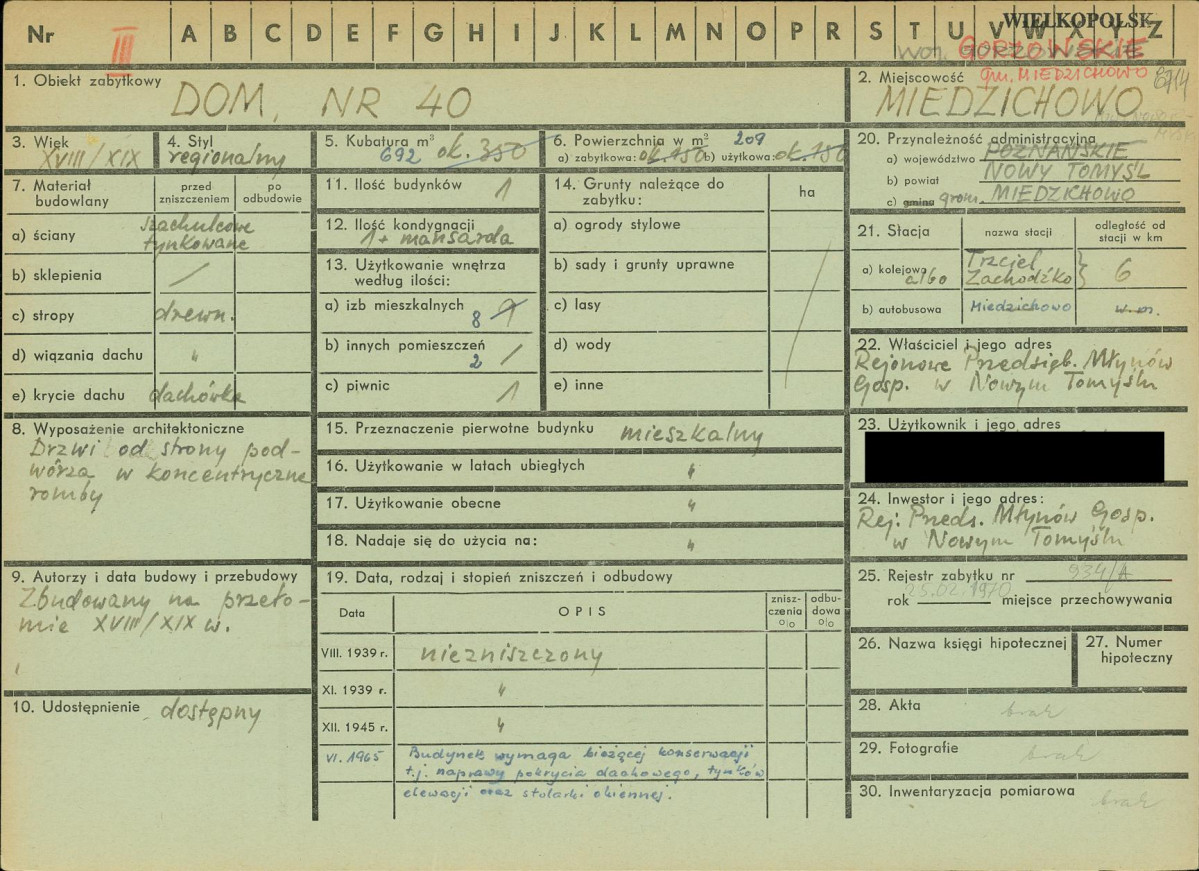 Nr II A B C D E F G H I J K L M N O P R S T U V W X Y Z
WIELKOPOLSK
woj. GORZOWSKIE
gm. MIEDZICHOWO
1. Obiekt zabytkowy
DOM, NR 40
2. Miejscowość
MIEDZICHOWO
3. Wiek
XVIII/XIX
4. Styl
regionalny
5. Kubatura m³
692 ok. 350
6. Powierzchnia w m² 209
a) zabytkowa: ok. 150 b) użytkowa: ok. 150
7. Materiał budowlany
przed zniszczeniem
po odbudowie
a) ściany szachulcowe
tynkowane
b) sklepienia /
c) stropy drewn.
d) wiązania dachu "
e) krycie dachu dachówka
8. Wyposażenie architektoniczne
Drzwi od strony pod-
wórza w koncentryczne
romby
9. Autorzy i data budowy i przebudowy
Zbudowany na przeło-
mie XVIII/XIX w.
10. Udostępnienie dostępny
11. Ilość budynków 1
12. Ilość kondygnacji
1 + mansarda
13. Użytkowanie wnętrza
według ilości:
a) izb mieszkalnych 8 9
b) innych pomieszczeń 2 1
c) piwnic 1
14. Grunty należące do
zabytku:
ha
a) ogrody stylowe
b) sady i grunty uprawne
c) lasy
d) wody
e) inne
15. Przeznaczenie pierwotne budynku mieszkalny
16. Użytkowanie w latach ubiegłych "
17. Użytkowanie obecne "
18. Nadaje się do użycia na: "
19. Data, rodzaj i stopień zniszczeń i odbudowy
Data
OPIS
znisz-
czenia
%
odbu-
dowa
%
VIII. 1939 r. niezniszczony
XI. 1939 r. "
XII. 1945 r. "
VI. 1965 Budynek wymaga bieżącej konserwacji
t.j. naprawy pokrycia dachowego, tynków
elewacji oraz stolarki okiennej.
20. Przynależność administracyjna
a) województwo POZNAŃSKIE
b) powiat NOWY TOMYŚL
c) gmina grom. MIEDZICHOWO
21. Stacja
nazwa stacji
odległość od
stacji w km
a) kolejowa Trzciel
albo Zachodźko 6
b) autobusowa Miedzichowo w m.
22. Właściciel i jego adres
Rejonowe Przedsięb. Młynów
Gosp. w Nowym Tomyślu
23. Użytkownik i jego adres
24. Inwestor i jego adres:
Rej. Przeds. Młynów Gosp.
w Nowym Tomyślu
25. Rejestr zabytku nr 934/A
rok 25.02.1970 miejsce przechowywania
26. Nazwa księgi hipotecznej
27. Numer
hipoteczny
28. Akta brak
29. Fotografie brak
30. Inwentaryzacja pomiarowa brak